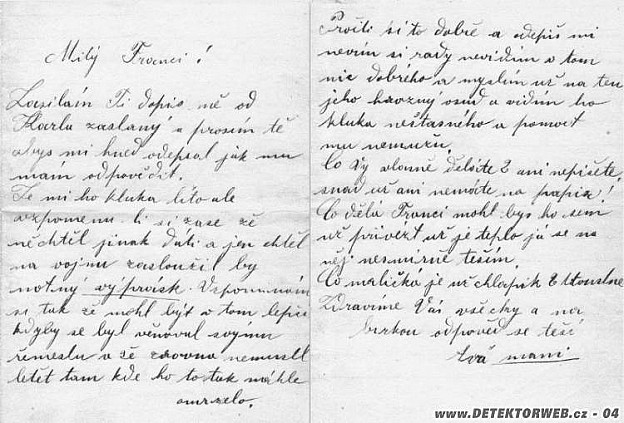 Milý Franci!
Zasilám Ti dopis mě od
Karla zaslaný a prosím tě
abys mi hned odepsal jak mu
mam odpovědít.
Je mi ho kluka líto ale
vzpomenu li si zase že
něchtěl jinak dáti a jen chtěl
na vojnu zasloužil by
notny výprask. Vzpomínám
si tak že mohl být o tom lepší
kdyby se byl věnoval svýmu
řemeslu a že zrovna nemusil
letět tam kde ho to tak náhle
omrzelo.
Pročti si to dobře a odepiš mi
nevím si rady nevidím v tom
nic dobreho a myslím už na ten
jeho hrozný osud a vidím ho
kluka nešťasného a pomoct
mu nemužu.
Co Vy vlastně děláte ani nepíšete,
snad už ani nemáte na papír!
Co dělá Franci mohl bys ho sem
už přivézt už je teplo já se na
něj nesmírně těším
Co maličká je už chlapík
Zdravíme Vás všecky a na
brzkou odpověd se těší
mami
www.DETEKTORWEB.cz - 04